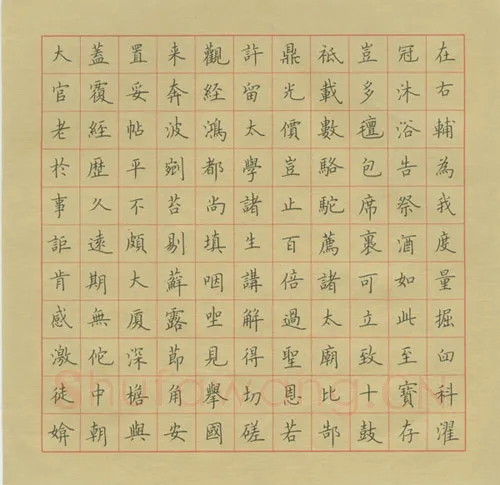 在右輔為我度量掘臼科濯
冠沐浴告祭酒如此至寶存
豈多氈包席裹可立致十鼓
祇載數駱駝薦諸太廟比郜
鼎光價豈止百倍過聖恩若
許留太學諸生講解得切磋
觀經鴻都尚填咽坐見舉國
来奔波剜苔剔蘚露節角安
置妥帖平不頗大厦深檐與
蓋覆經歴久遠期無佗中朝
大官老於事詎肯感激徒媕
Shufawang.CN